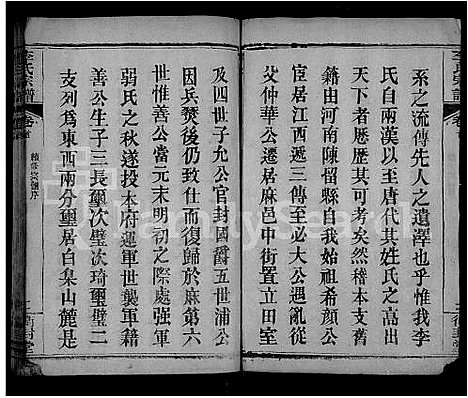 系之流傳先人之遺澤也乎惟我李
氏自兩漢以至唐代其姓氏之高出
天下者歷歷其可考矣然稽本支舊
籍由河南陳留縣自我始祖希顏公
宦居江西遞三傳至必大公遇亂從
父仲華公遷居麻邑中街置立田室
及四世子允公官封國爵五世浦公
因兵燹後仍致仕而復歸於麻第六
世惟善公當元末明初之際處強軍
弱民之秋遂投本府運軍世襲軍籍
善公生子三長璽次璧次琦璽璧二
支列爲東西兩分璽居白杲山麓是
李氏宗譜
卷首
FamilySearch